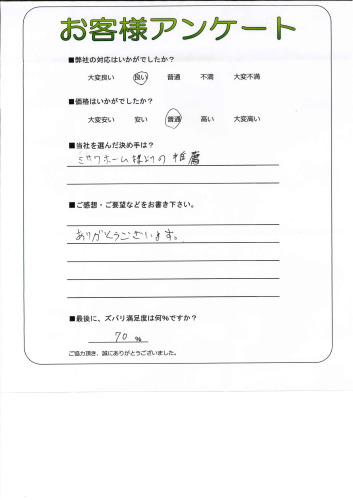 お客様アンケート
■弊社の対応はいかがでしたか？
大変良い　良い　普通　不満　大変不満
■価格はいかがでしたか？
大変安い　安い　普通　高い　大変高い
■当社を選んだ決め手は？
ミサワホーム様よりの推薦
■ご感想・ご要望などをお書き下さい。
ありがとうございます。
■最後に、ズバリ満足度は何%ですか？
70 %
ご協力頂き、誠にありがとうございました。